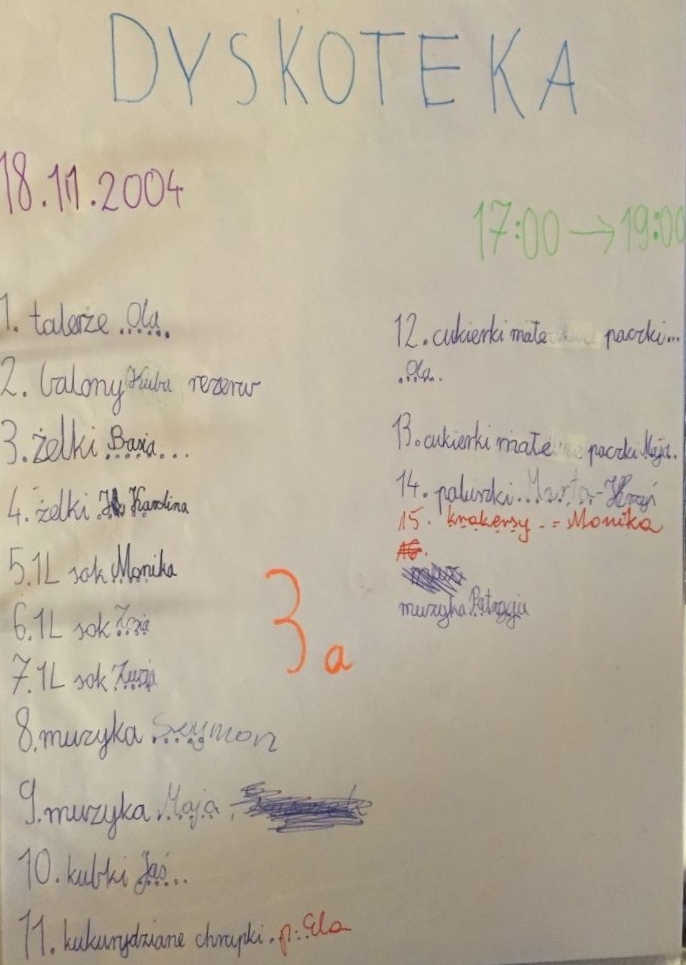 DYSKOTEKA
18.11.2004
17:00 → 19:00
1. talerze .Ola.
2. balony Kuba rezerw
3. żelki Basia...
4. żelki Karolina
5. 1L sok Monika
6. 1L sok Zuzia
7. 1L sok Zuzia
8. muzyka Szymon
9. muzyka Maja.
10. kubki Jaś..
11. kukurydziane chrupki. p. Ela
3a
12. cukierki małe paczki...
.Ola.
13. cukierki małe paczki Maja.
14. paluszki... Marta-
15. krakersy .= Monika
muzyka Patrycja